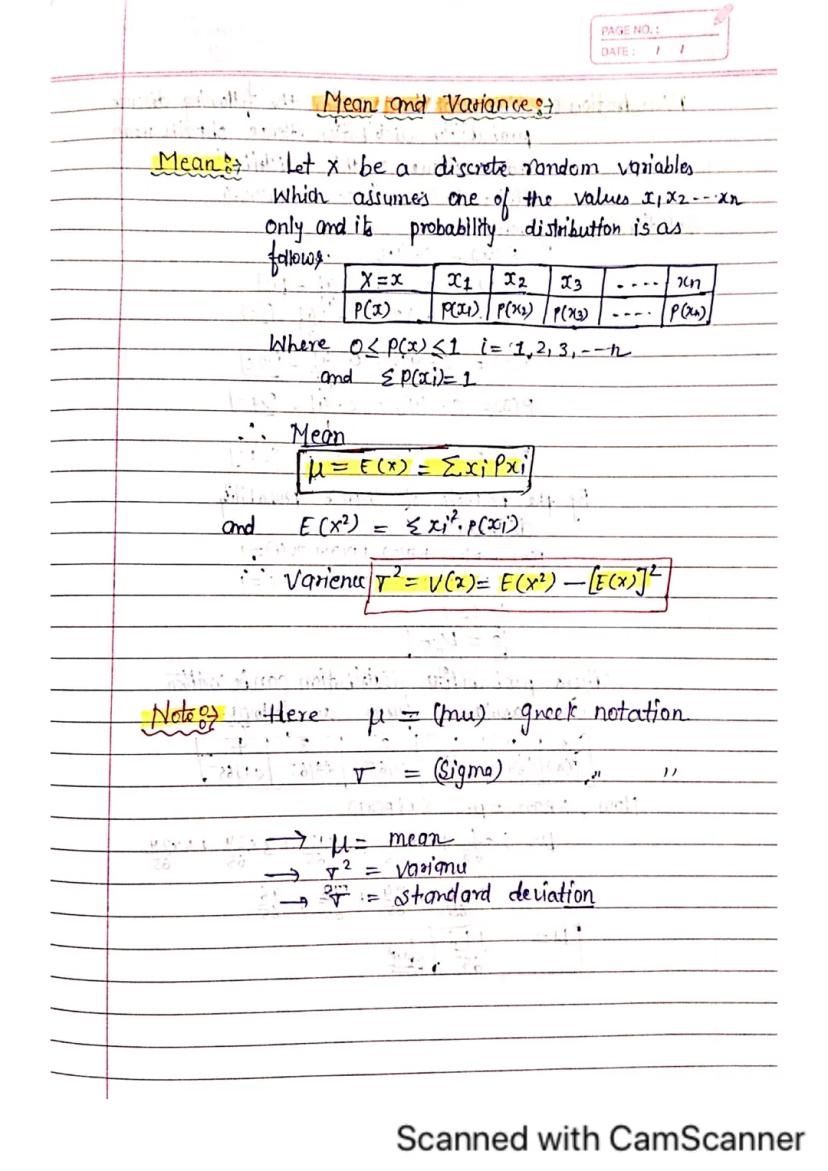 PAGE NO.:
DATE: / /
Mean and Variance :→
Mean :→ Let x be a discrete random variables
Which assumes one of the values x₁ x₂ --- xn
only and its probability distribution is as
follows.
X = x x₁ x₂ x₃ .... xn
P(x) P(x₁) P(x₂) P(x₃) .... P(xn)
Where 0 ≤ P(x) ≤ 1 i = 1, 2, 3, --- n
and Σ P(xi) = 1
∴ Mean
μ = E(x) = Σ xi Pxi
and E(x²) = Σ xi². P(xi)
∴ Varience σ² = V(x) = E(x²) — [E(x)]²
Note :→ Here μ = (mu) greek notation
σ = (Sigma) ,, ,,
→ μ = mean
→ σ² = varianu
→ σ = standard deviation
Scanned with CamScanner